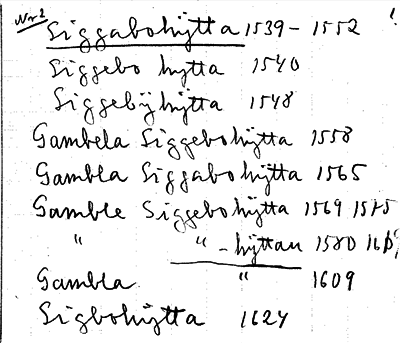 Nr 2
Siggabohÿtta 1539 - 1552
Siggebo hytta 1540
Siggebÿhÿtta 1548
Gambela Siggebohÿtta 1558
Gambla Siggabohÿtta 1565
Gamble Siggebohÿtta 1569 1575
" " - hÿttan 1580
Gambla " 1609
Sigbohÿtta 1624